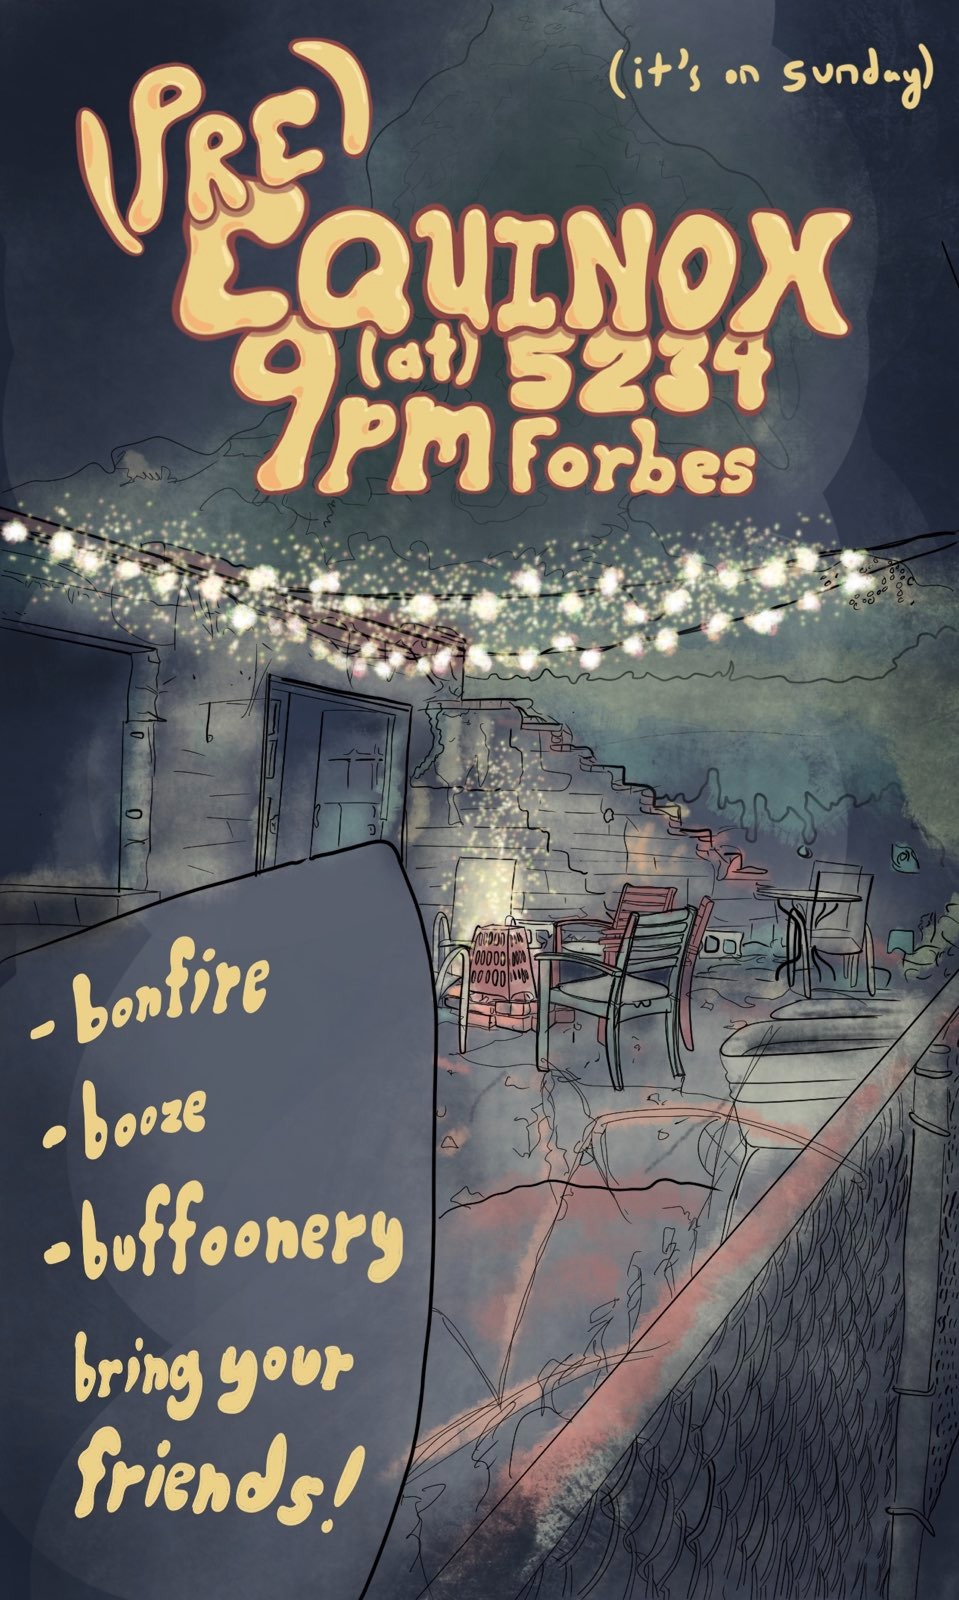 (it's on sunday)
(PRE)
EQUINOX
9pm (at) 5234
Forbes
- bonfire
- booze
- buffoonery
bring your
friends!